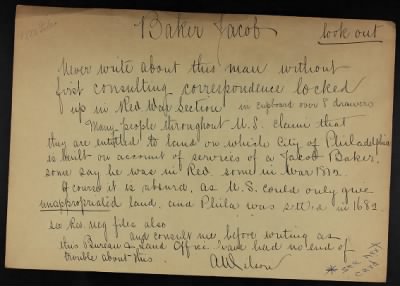 Baker Jacob
look out
Never write about this man without
first consulting correspondence locked
up in Red Wax Section in cupboard over 8 drawers
Many people throughout U.S. claim that
they are entitled to land on which City of Philadelphia
is built on account of services of a Jacob Baker,
some say he was in Rev. some in War 1812.
Of course it is absurd, as U.S. could only give
unappropriated land, and Phila was settled in 1682
see Rev. neg files also
and consult me before writing as
this Bureau & Land Office have had no end of
trouble about this.
A W Wilson
* see next card